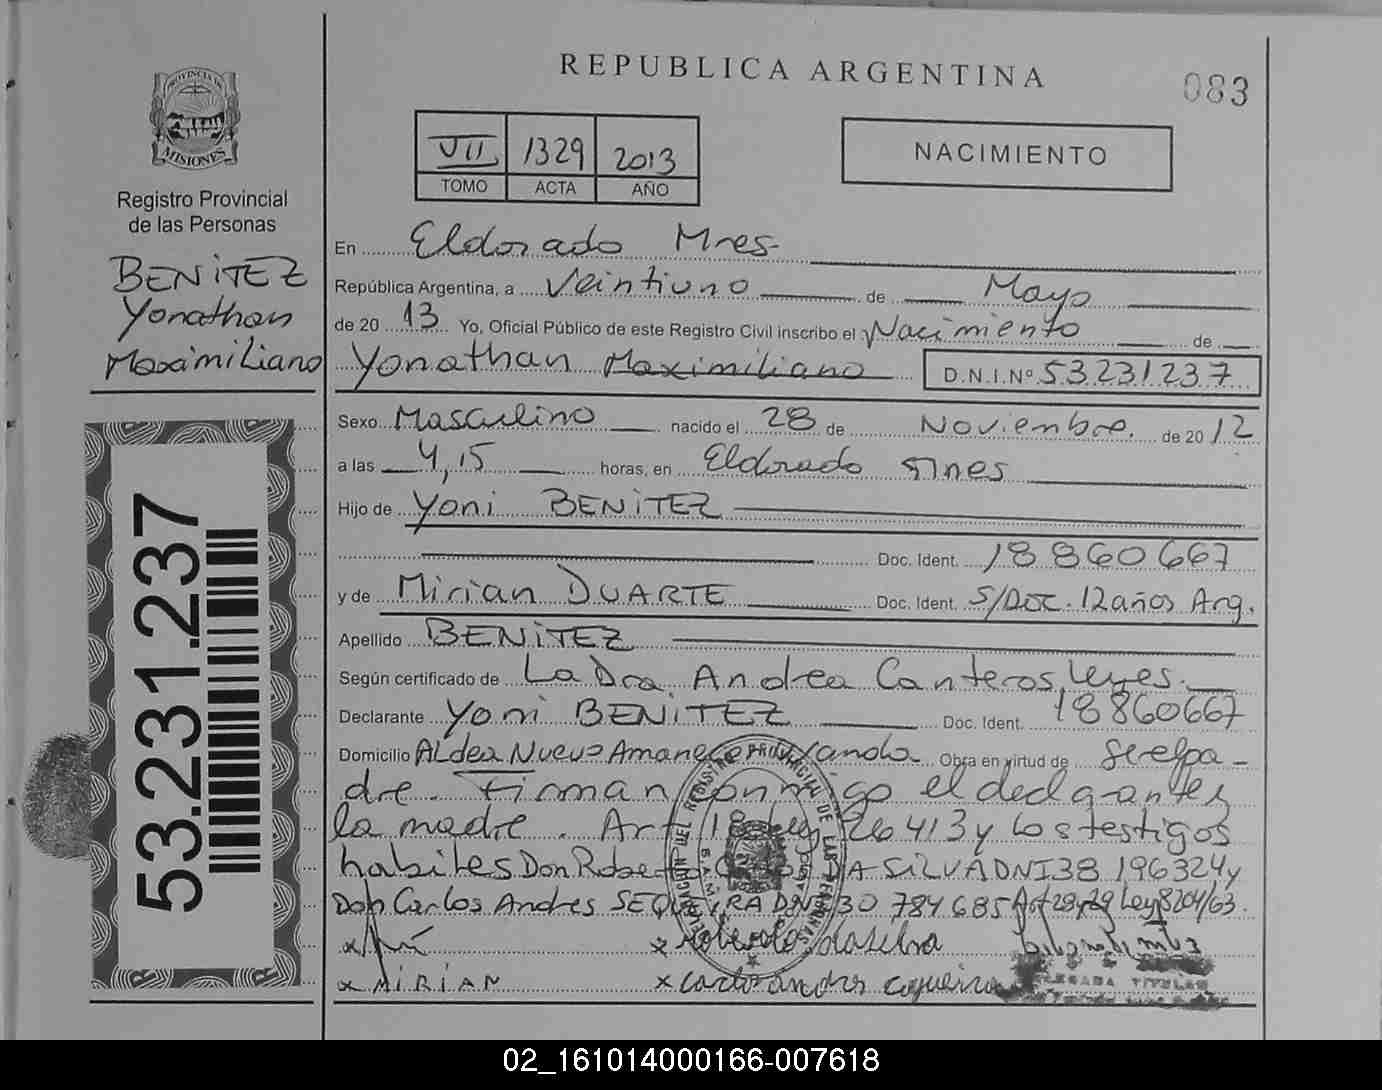 REPUBLICA ARGENTINA
083
PROVINCIA DE
MISIONES
Registro Provincial
de las Personas
BENiTEZ
Yonathan
Maximiliano
VII 1329 2013
TOMO ACTA AÑO
NACIMIENTO
En Eldorado Mnes-
República Argentina, a Veintiuno de Mayo
de 20 13 Yo, Oficial Público de este Registro Civil inscribo el Nacimiento de
Yonathan Maximiliano D.N.I.Nº 53231237
Sexo Masculino nacido el 28 de Noviembre. de 20 12
a las 4,15 horas, en Eldorado Mnes
Hijo de Yoni BENiTEZ
Doc. Ident. 18860667
y de Mirian DUARTE Doc. Ident. S/Doc. 12 años Arg.
Apellido BENiTEZ
Según certificado de La Dra. Andrea Canteros Leyes.
Declarante Yoni BENiTEZ Doc. Ident. 18860667
Domicilio Aldea Nuevo Amanecer Obra en virtud de Ser el pa-
dre. Firman conmigo el declarante y
la madre. Art 18 Ley 26413 y los testigos
habiles Don Roberto DA SiLVA DNI 38 196324 y
Don Carlos Andres SEQUEIRA DNI 30 784 685 Art 28 y 29 Ley 8204/63.
x MiRiAN
53.231.237
02_161014000166-007618